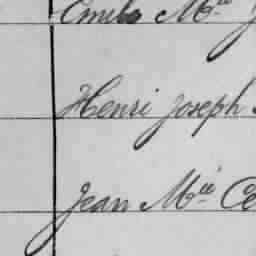 Emile Mie
Henri Joseph
Jean Mie Cé